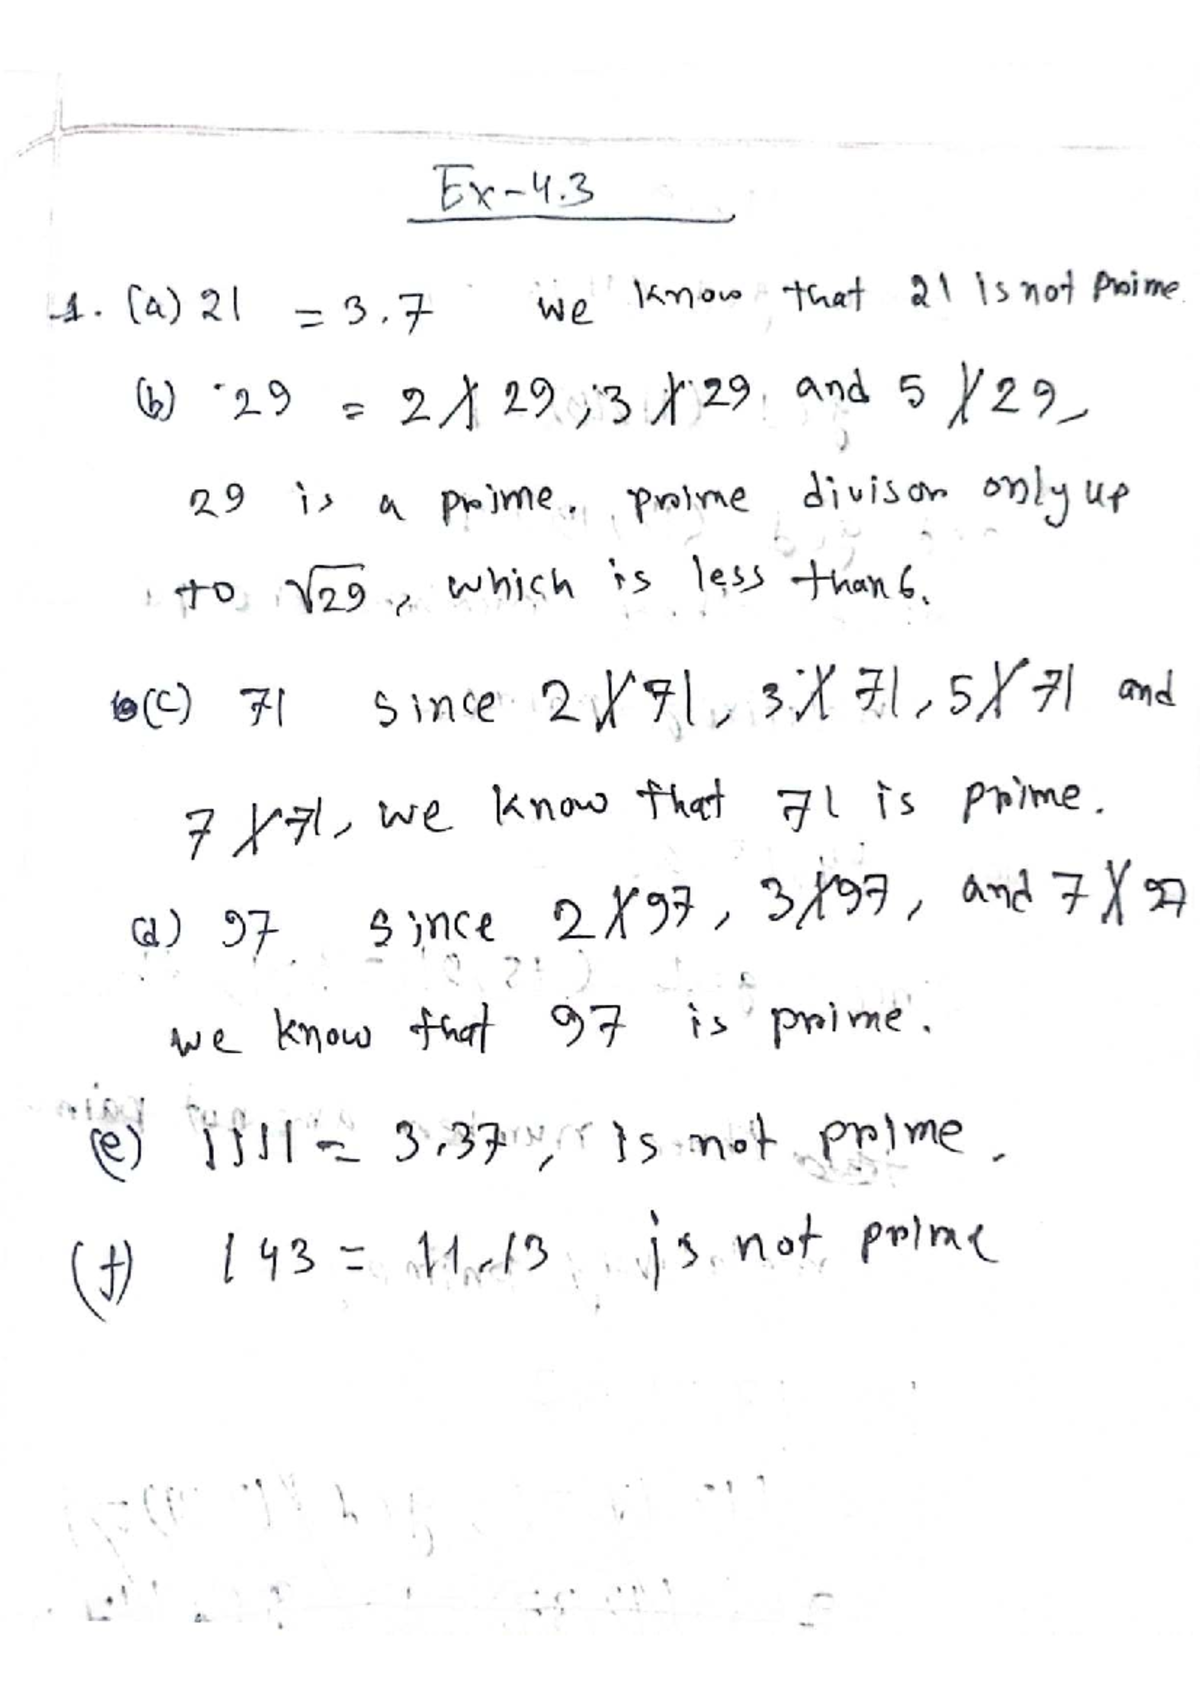 Ex-4.3
1. (a) 21 = 3.7 we know that 21 is not prime.
(b) 29 = 2 ∤ 29, 3 ∤ 29, and 5 ∤ 29,
29 is a prime. prime divison only up
to √29, which is less than 6.
(c) 71 since 2 ∤ 71, 3 ∤ 71, 5 ∤ 71 and
7 ∤ 71, we know that 71 is prime.
(d) 97 since 2 ∤ 97, 3 ∤ 97, and 7 ∤ 97
we know that 97 is prime.
(e) 1111 = 3.37, is not prime.
(f) 143 = 11.13 is not prime